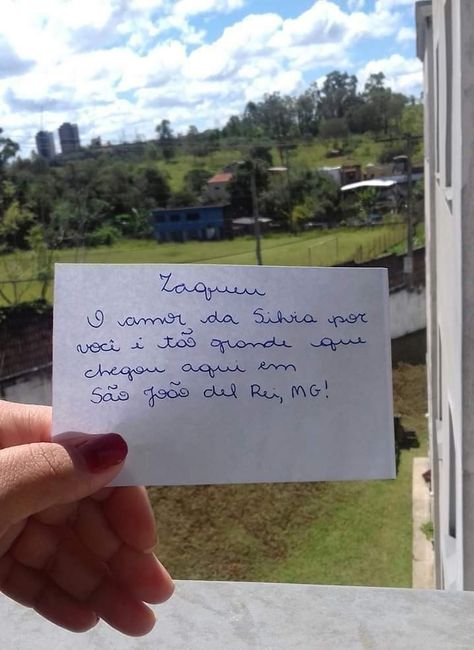 Zaqueu
O amor da Silvia por
você é tão grande que
chegou aqui em
São João del Rei, MG!